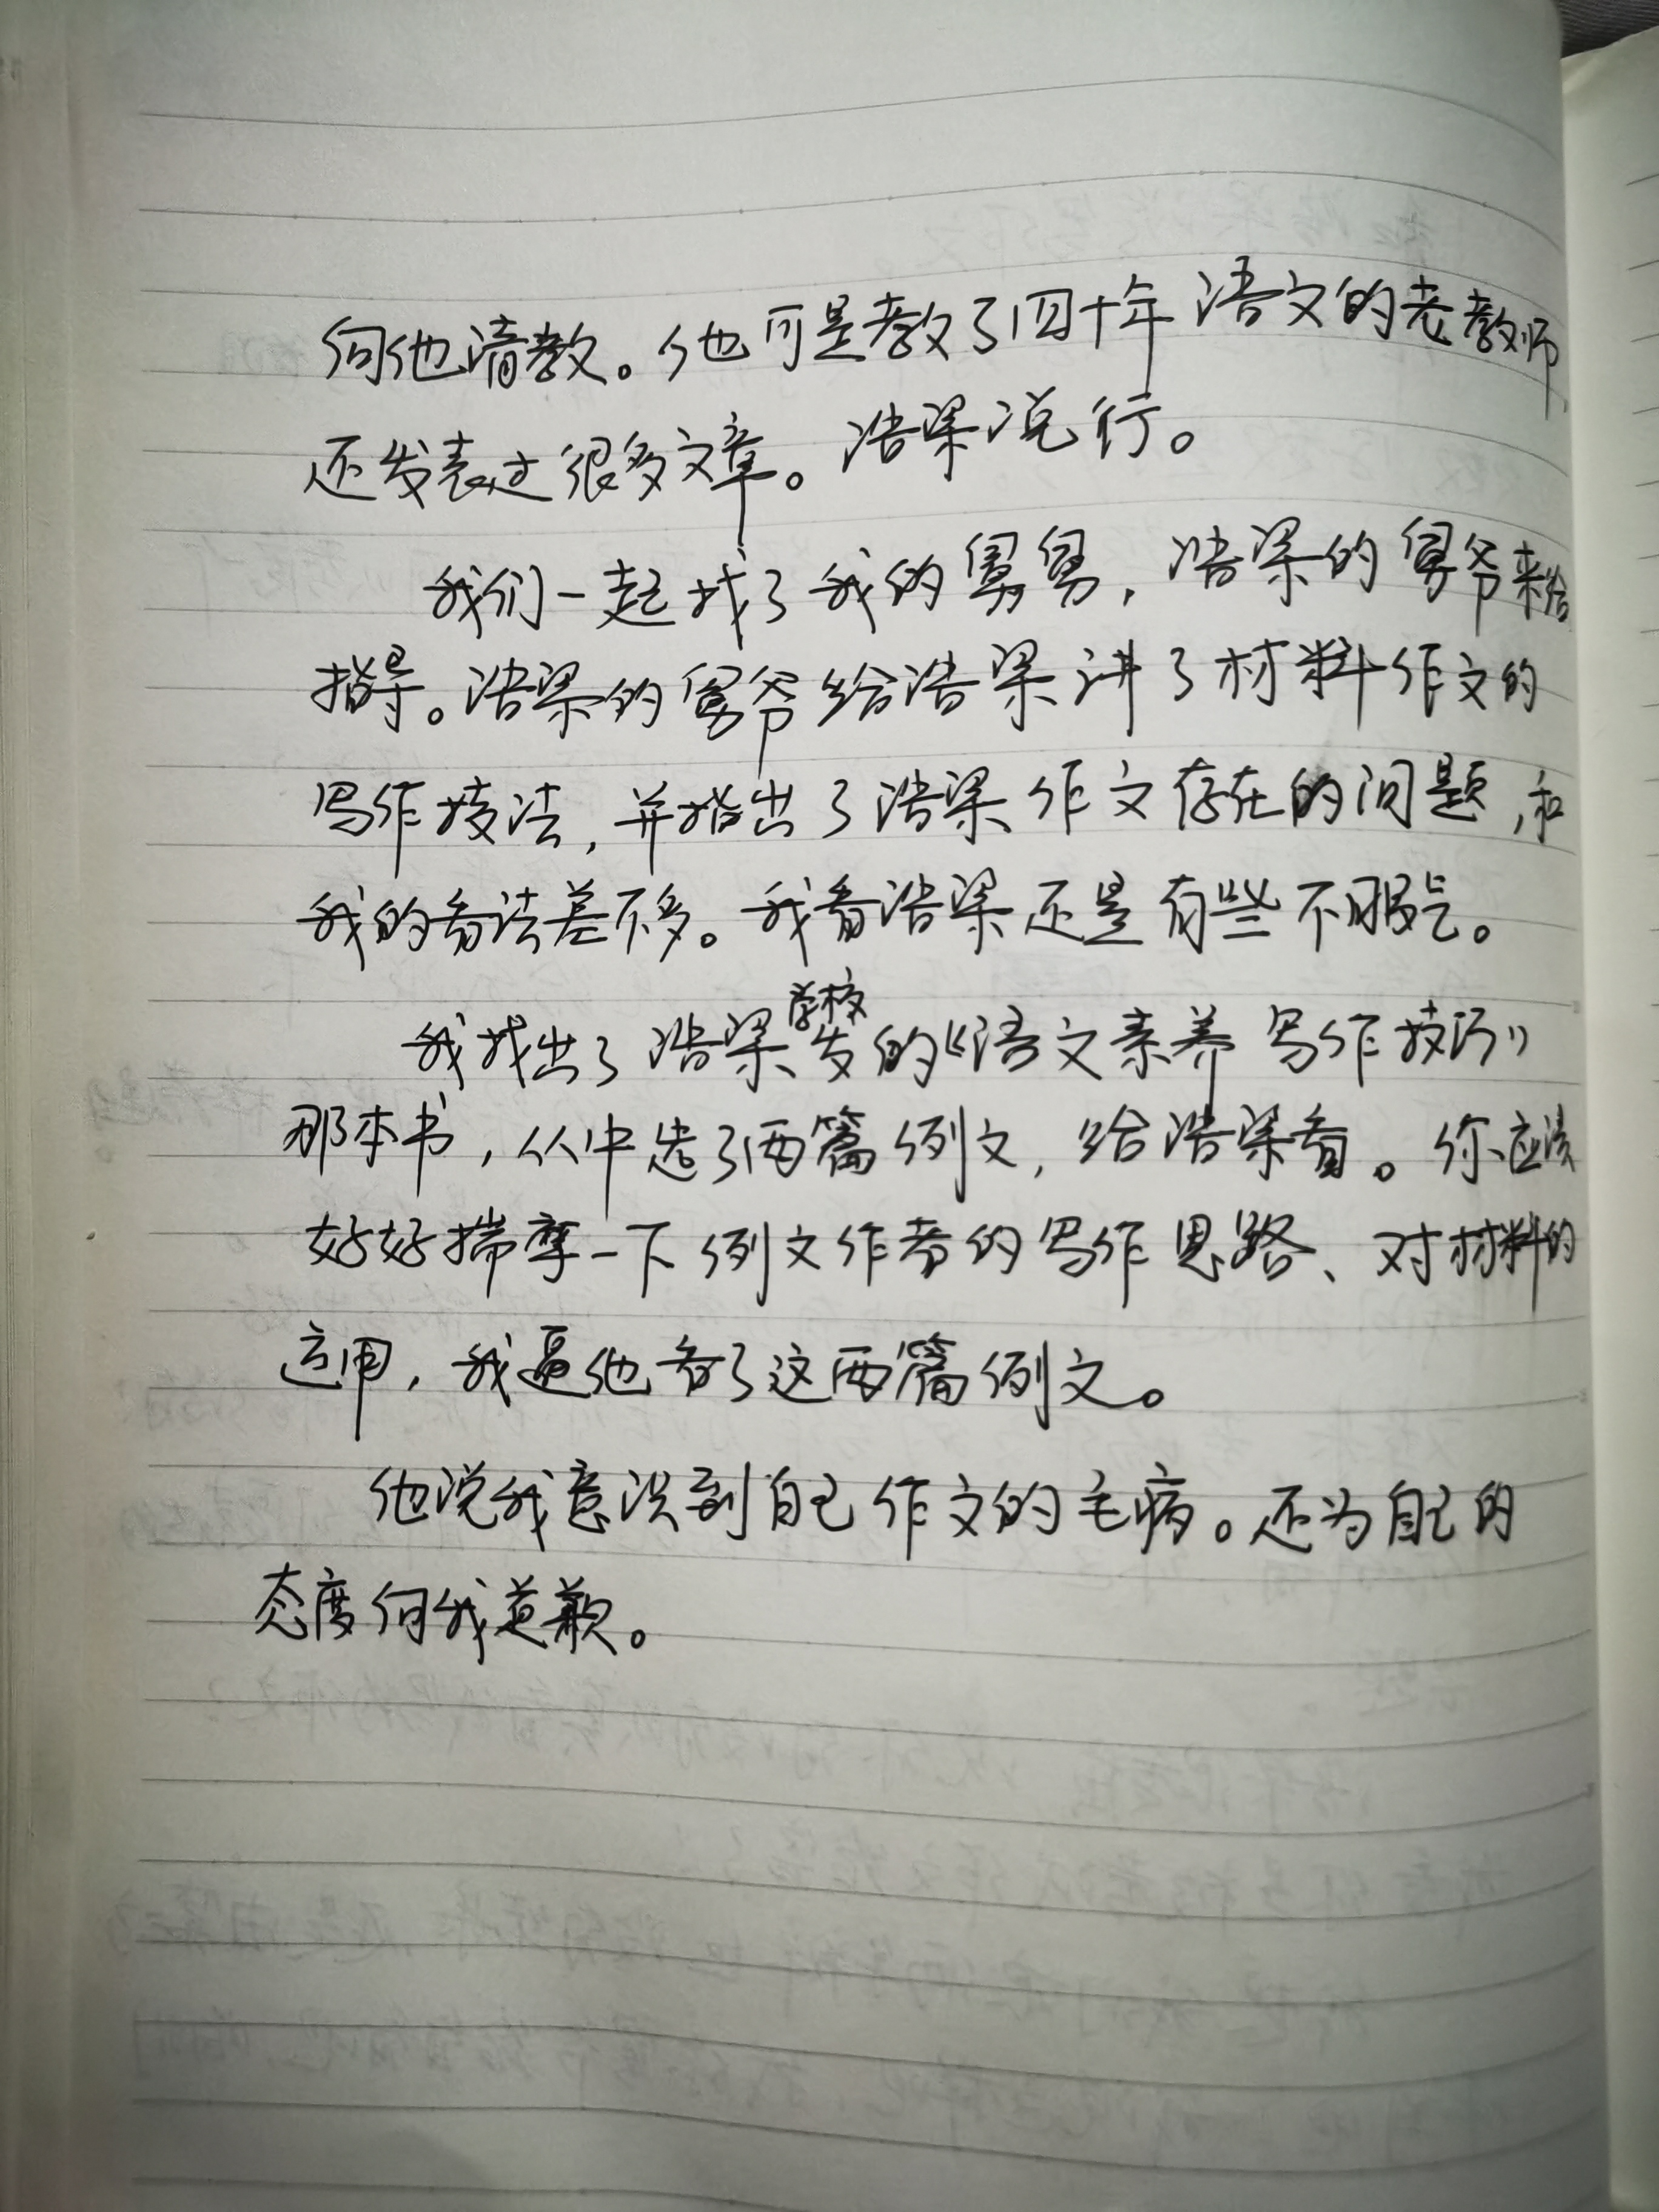 向他请教。他可是教了四十年语文的老教师,
还发表过很多文章。浩梁说行。
我们一起找了我的舅舅,浩梁的舅爷来给
指导。浩梁的舅爷给浩梁讲了材料作文的
写作技法,并指出了浩梁作文存在的问题,和
我的看法差不多。我看浩梁还是有些不服气。
我找出了浩梁学校发的《语文素养 写作技巧》
那本书,从中选了两篇例文,给浩梁看。你应该
好好揣摩一下例文作者的写作思路、对材料的
运用,我逼他看了这两篇例文。
他说我意识到自己作文的毛病。还为自己的
态度向我道歉。